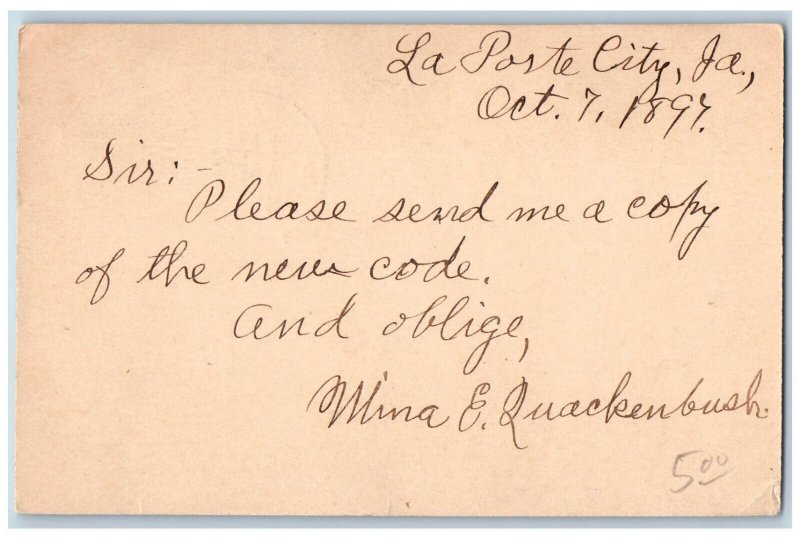 La Porte City, Ia.,
Oct. 7, 1897.
Sir:-
Please send me a copy
of the new code.
And oblige,
Mina E. Quackenbush.
5.00